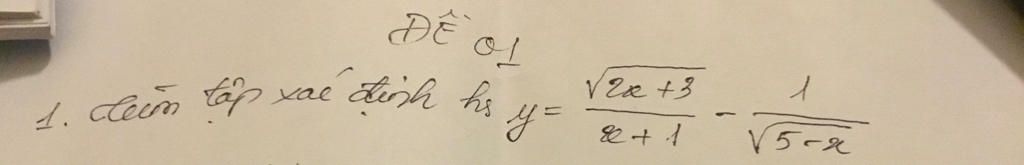 ĐỀ 01
1. tìm tập xác định hs y = \frac{\sqrt{2x+3}}{x+1} - \frac{1}{\sqrt{5-x}}